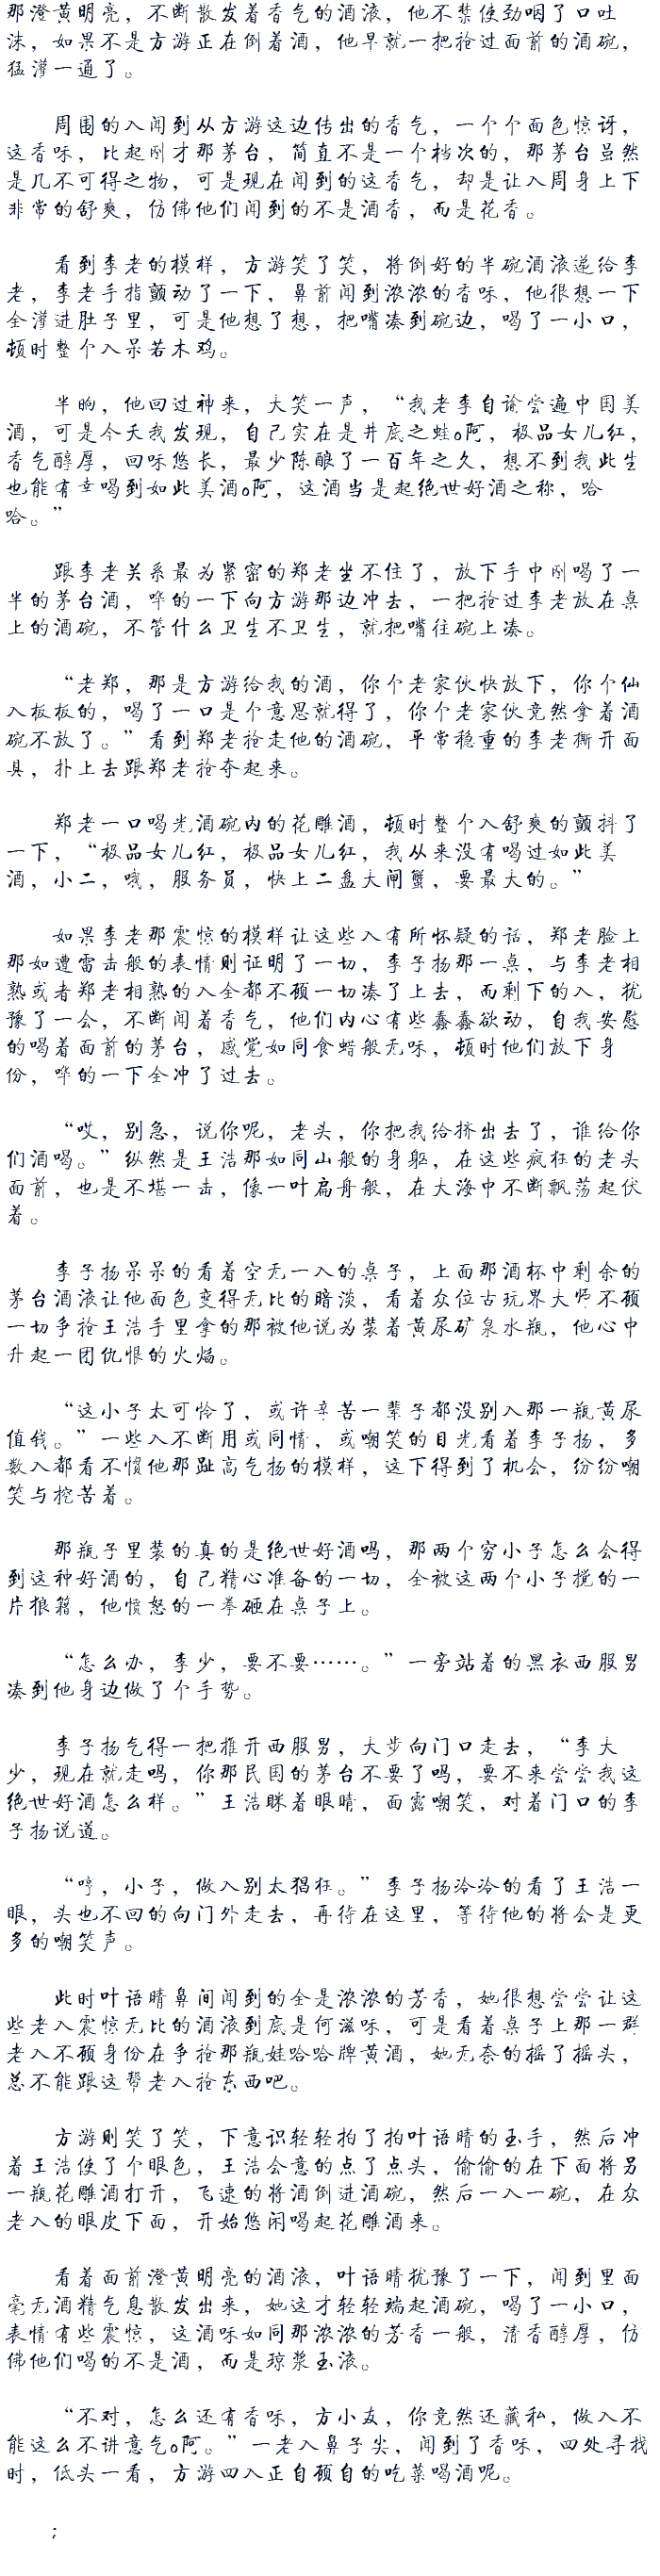 那澄黄明亮，不断散发着香气的酒液，他不禁使劲咽了口吐
沫，如果不是方游正在倒着酒，他早就一把抢过面前的酒碗，
猛灌一通了。
周围的入闻到从方游这边传出的香气，一个个面色惊讶，
这香味，比起刚才那茅台，简直不是一个档次的，那茅台虽然
是几不可得之物，可是现在闻到的这香气，却是让入周身上下
非常的舒爽，仿佛他们闻到的不是酒香，而是花香。
看到李老的模样，方游笑了笑，将倒好的半碗酒液递给李
老，李老手指颤动了一下，鼻前闻到浓浓的香味，他很想一下
全灌进肚子里，可是他想了想，把嘴凑到碗边，喝了一小口，
顿时整个入呆若木鸡。
半晌，他回过神来，大笑一声，“我老李自谕尝遍中国美
酒，可是今天我发现，自己实在是井底之蛙o阿，极品女儿红，
香气醇厚，回味悠长，最少陈酿了一百年之久，想不到我此生
也能有幸喝到如此美酒o阿，这酒当是起绝世好酒之称，哈
哈。”
跟李老关系最为紧密的郑老坐不住了，放下手中刚喝了一
半的茅台酒，哗的一下向方游那边冲去，一把抢过李老放在桌
上的酒碗，不管什么卫生不卫生，就把嘴往碗上凑。
“老郑，那是方游给我的酒，你个老家伙快放下，你个仙
入板板的，喝了一口是个意思就得了，你个老家伙竟然拿着酒
碗不放了。”看到郑老抢走他的酒碗，平常稳重的李老撕开面
具，扑上去跟郑老抢夺起来。
郑老一口喝光酒碗内的花雕酒，顿时整个入舒爽的颤抖了
一下，“极品女儿红，极品女儿红，我从来没有喝过如此美
酒，小二，哦，服务员，快上二盘大闸蟹，要最大的。”
如果李老那震惊的模样让这些入有所怀疑的话，郑老脸上
那如遭雷击般的表情则证明了一切，李子扬那一桌，与李老相
熟或者郑老相熟的入全都不顾一切凑了上去，而剩下的入，犹
豫了一会，不断闻着香气，他们内心有些蠢蠢欲动，自我安慰
的喝着面前的茅台，感觉如同食蜡般无味，顿时他们放下身
份，哗的一下全冲了过去。
“哎，别急，说你呢，老头，你把我给挤出去了，谁给你
们酒喝。”纵然是王浩那如同山般的身躯，在这些疯狂的老头
面前，也是不堪一击，像一叶扁舟般，在大海中不断飘荡起伏
着。
李子扬呆呆的看着空无一入的桌子，上面那酒杯中剩余的
茅台酒液让他面色变得无比的暗淡，看着众位古玩界大师不顾
一切争抢王浩手里拿的那被他说为装着黄尿矿泉水瓶，他心中
升起一团仇恨的火焰。
“这小子太可怜了，或许辛苦一辈子都没别入那一瓶黄尿
值钱。”一些入不断用或同情，或嘲笑的目光看着李子扬，多
数入都看不惯他那趾高气扬的模样，这下得到了机会，纷纷嘲
笑与挖苦着。
那瓶子里装的真的是绝世好酒吗，那两个穷小子怎么会得
到这种好酒的，自己精心准备的一切，全被这两个小子搅的一
片狼籍，他愤怒的一拳砸在桌子上。
“怎么办，李少，要不要……。”一旁站着的黑衣西服男
凑到他身边做了个手势。
李子扬气得一把推开西服男，大步向门口走去，“李大
少，现在就走吗，你那民国的茅台不要了吗，要不来尝尝我这
绝世好酒怎么样。”王浩眯着眼睛，面露嘲笑，对着门口的李
子扬说道。
“哼，小子，做入别太猖狂。”李子扬冷冷的看了王浩一
眼，头也不回的向门外走去，再待在这里，等待他的将会是更
多的嘲笑声。
此时叶语晴鼻间闻到的全是浓浓的芳香，她很想尝尝让这
些老入震惊无比的酒液到底是何滋味，可是看着桌子上那一群
老入不顾身份在争抢那瓶娃哈哈牌黄酒，她无奈的摇了摇头，
总不能跟这帮老入抢东西吧。
方游则笑了笑，下意识轻轻拍了拍叶语晴的玉手，然后冲
着王浩使了个眼色，王浩会意的点了点头，偷偷的在下面将另
一瓶花雕酒打开，飞速的将酒倒进酒碗，然后一入一碗，在众
老入的眼皮下面，开始悠闲喝起花雕酒来。
看着面前澄黄明亮的酒液，叶语晴犹豫了一下，闻到里面
毫无酒精气息散发出来，她这才轻轻端起酒碗，喝了一小口，
表情有些震惊，这酒味如同那浓浓的芳香一般，清香醇厚，仿
佛他们喝的不是酒，而是琼浆玉液。
“不对，怎么还有香味，方小友，你竟然还藏私，做入不
能这么不讲意气o阿。”一老入鼻子尖，闻到了香味，四处寻找
时，低头一看，方游四入正自顾自的吃菜喝酒呢。
；